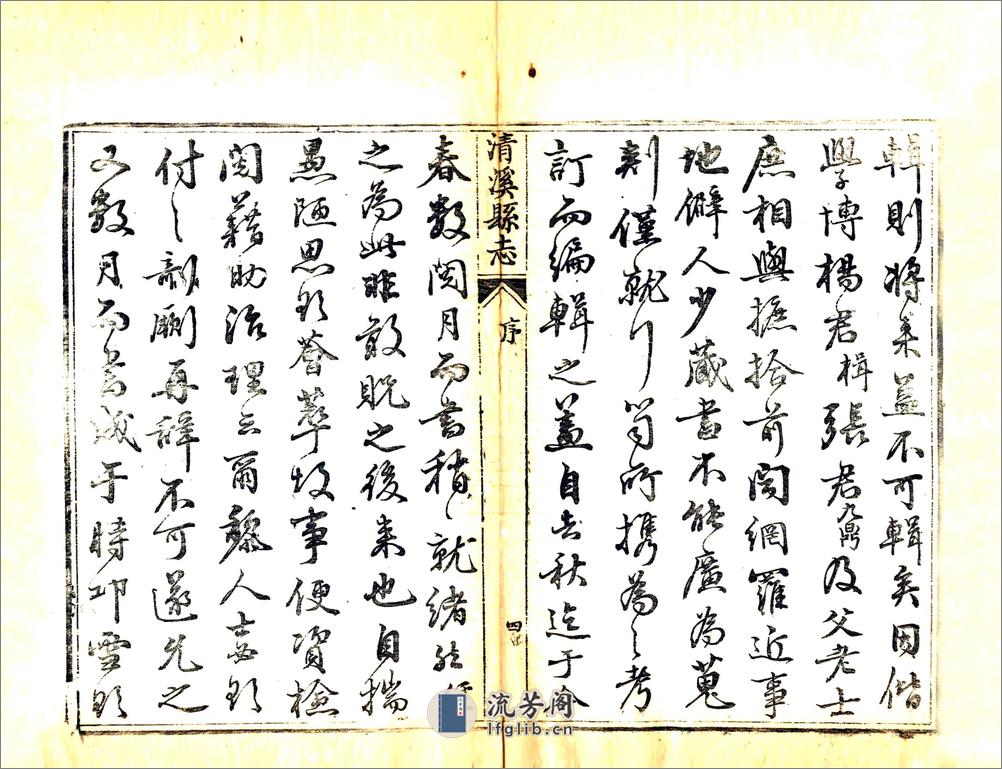 輯則將來益不可輯矣因偕
學博楊君楫張君九鼎及父老士
庶相與摭拾前聞網羅近事
地僻人少藏書不能廣為蒐
剔僅就行笥所攜為之考
訂而編輯之蓋自去秋迄于今
清溪縣志
序
四
春數閱月而書稍稍就緒然
之為此非敢貺之後來也自揣
愚陋思欲薈萃故事便資檢
閱藉助治理云爾黎人士欲
付之剞劂再辭不可遂允之
又數月而書成于時邛雪
流芳阁
lfglib.cn